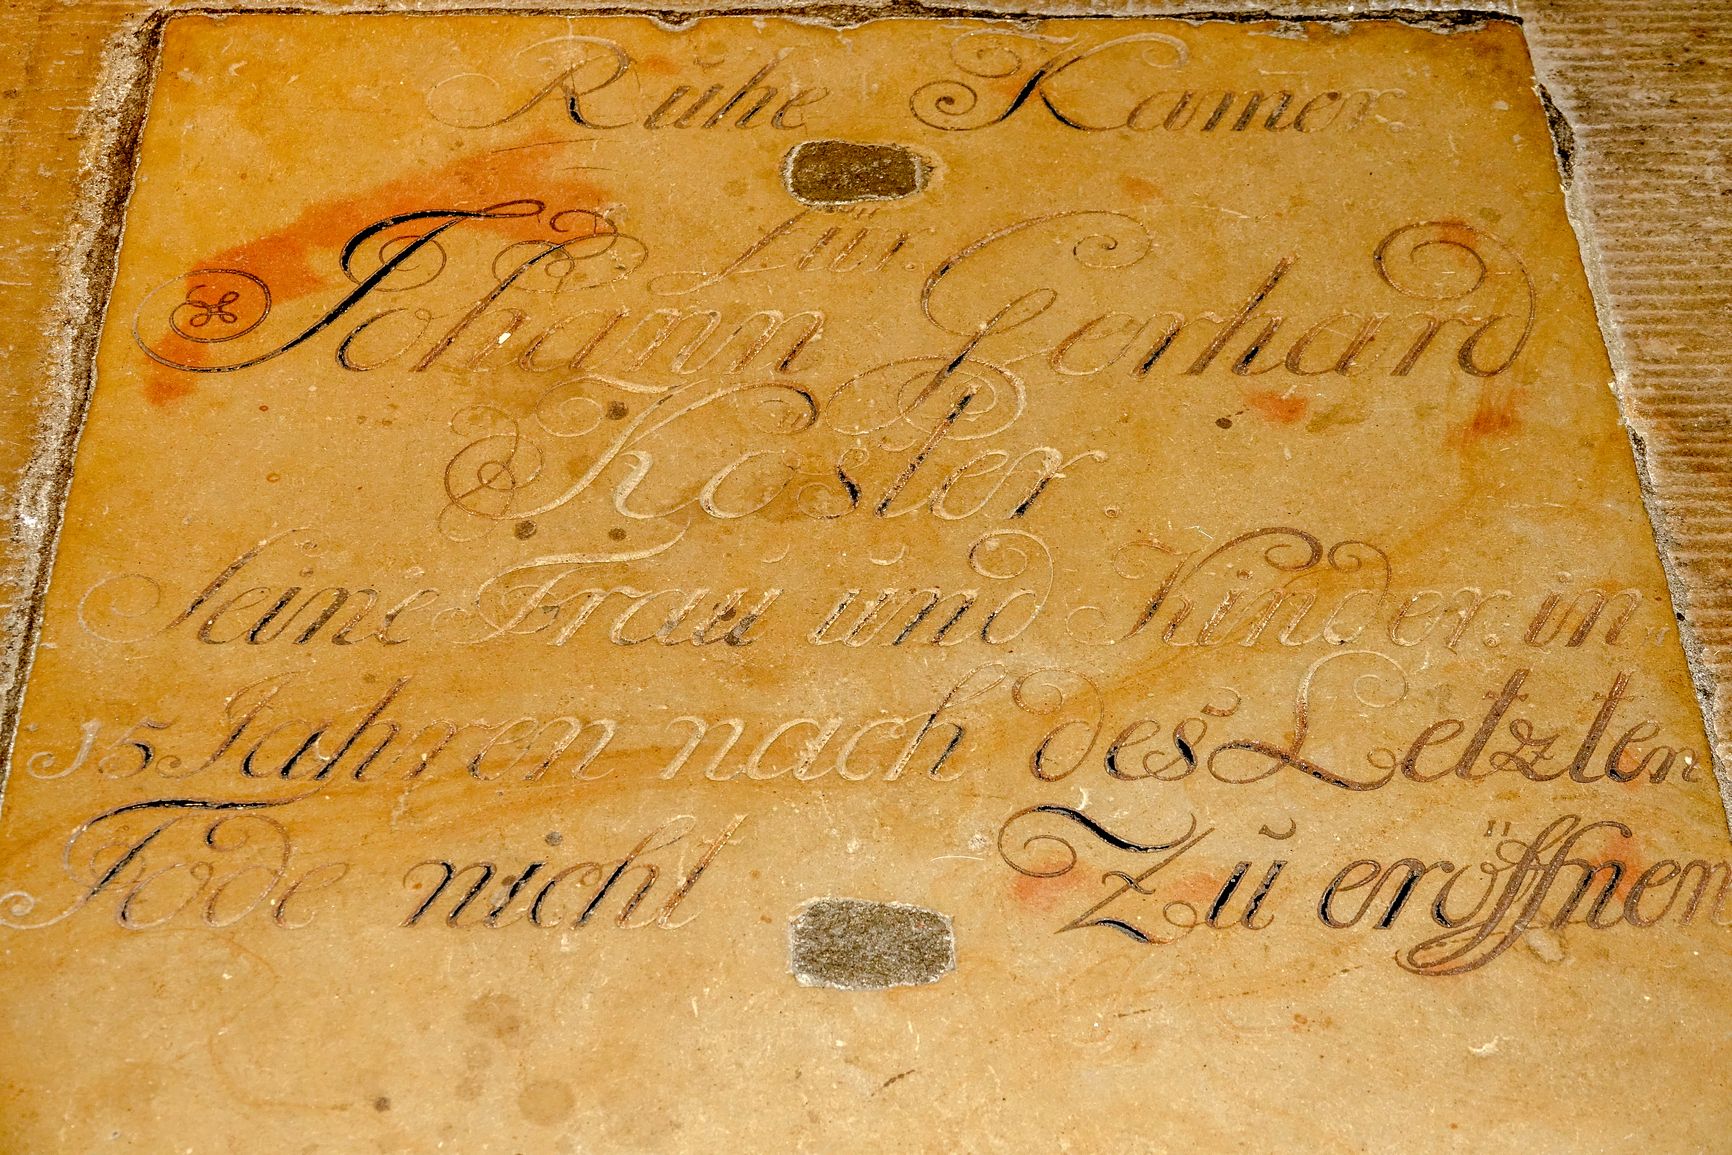 Ruhe Kamer.
für.
Johann Gerhard
Köster.
seine Frau und Kinder. in
15 Jahren nach des Letzten
Tode nicht Zu eröffnen